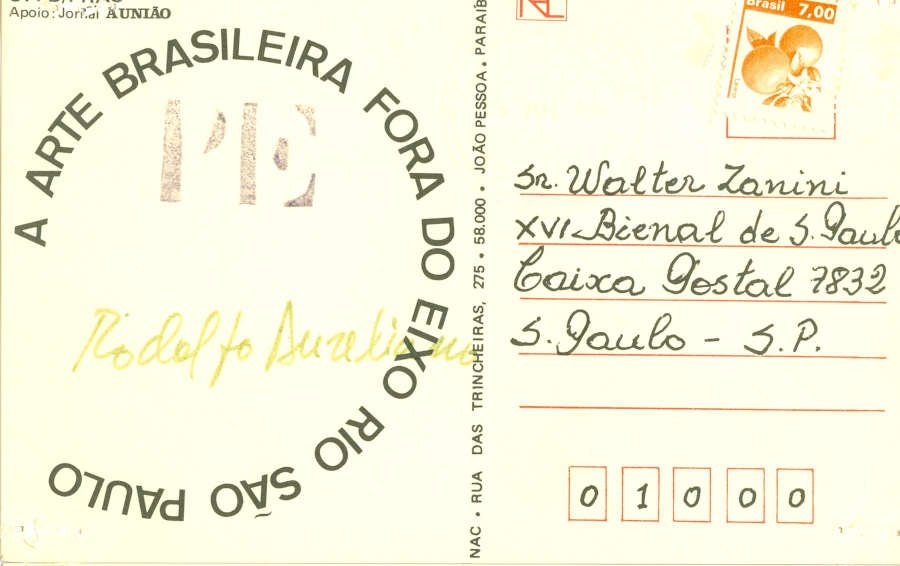 Apoio: Jornal A UNIÃO
A ARTE BRASILEIRA FORA DO EIXO RIO SÃO PAULO
PE
Rodolfo Aureliano
NAC • RUA DAS TRINCHEIRAS, 275 • 58.000 • JOÃO PESSOA • PARAÍB
Brasil 7,00
Sr. Walter Zanini
XVI Bienal de S. Paulo
Caixa Postal 7832
S. Paulo - S.P.
01000